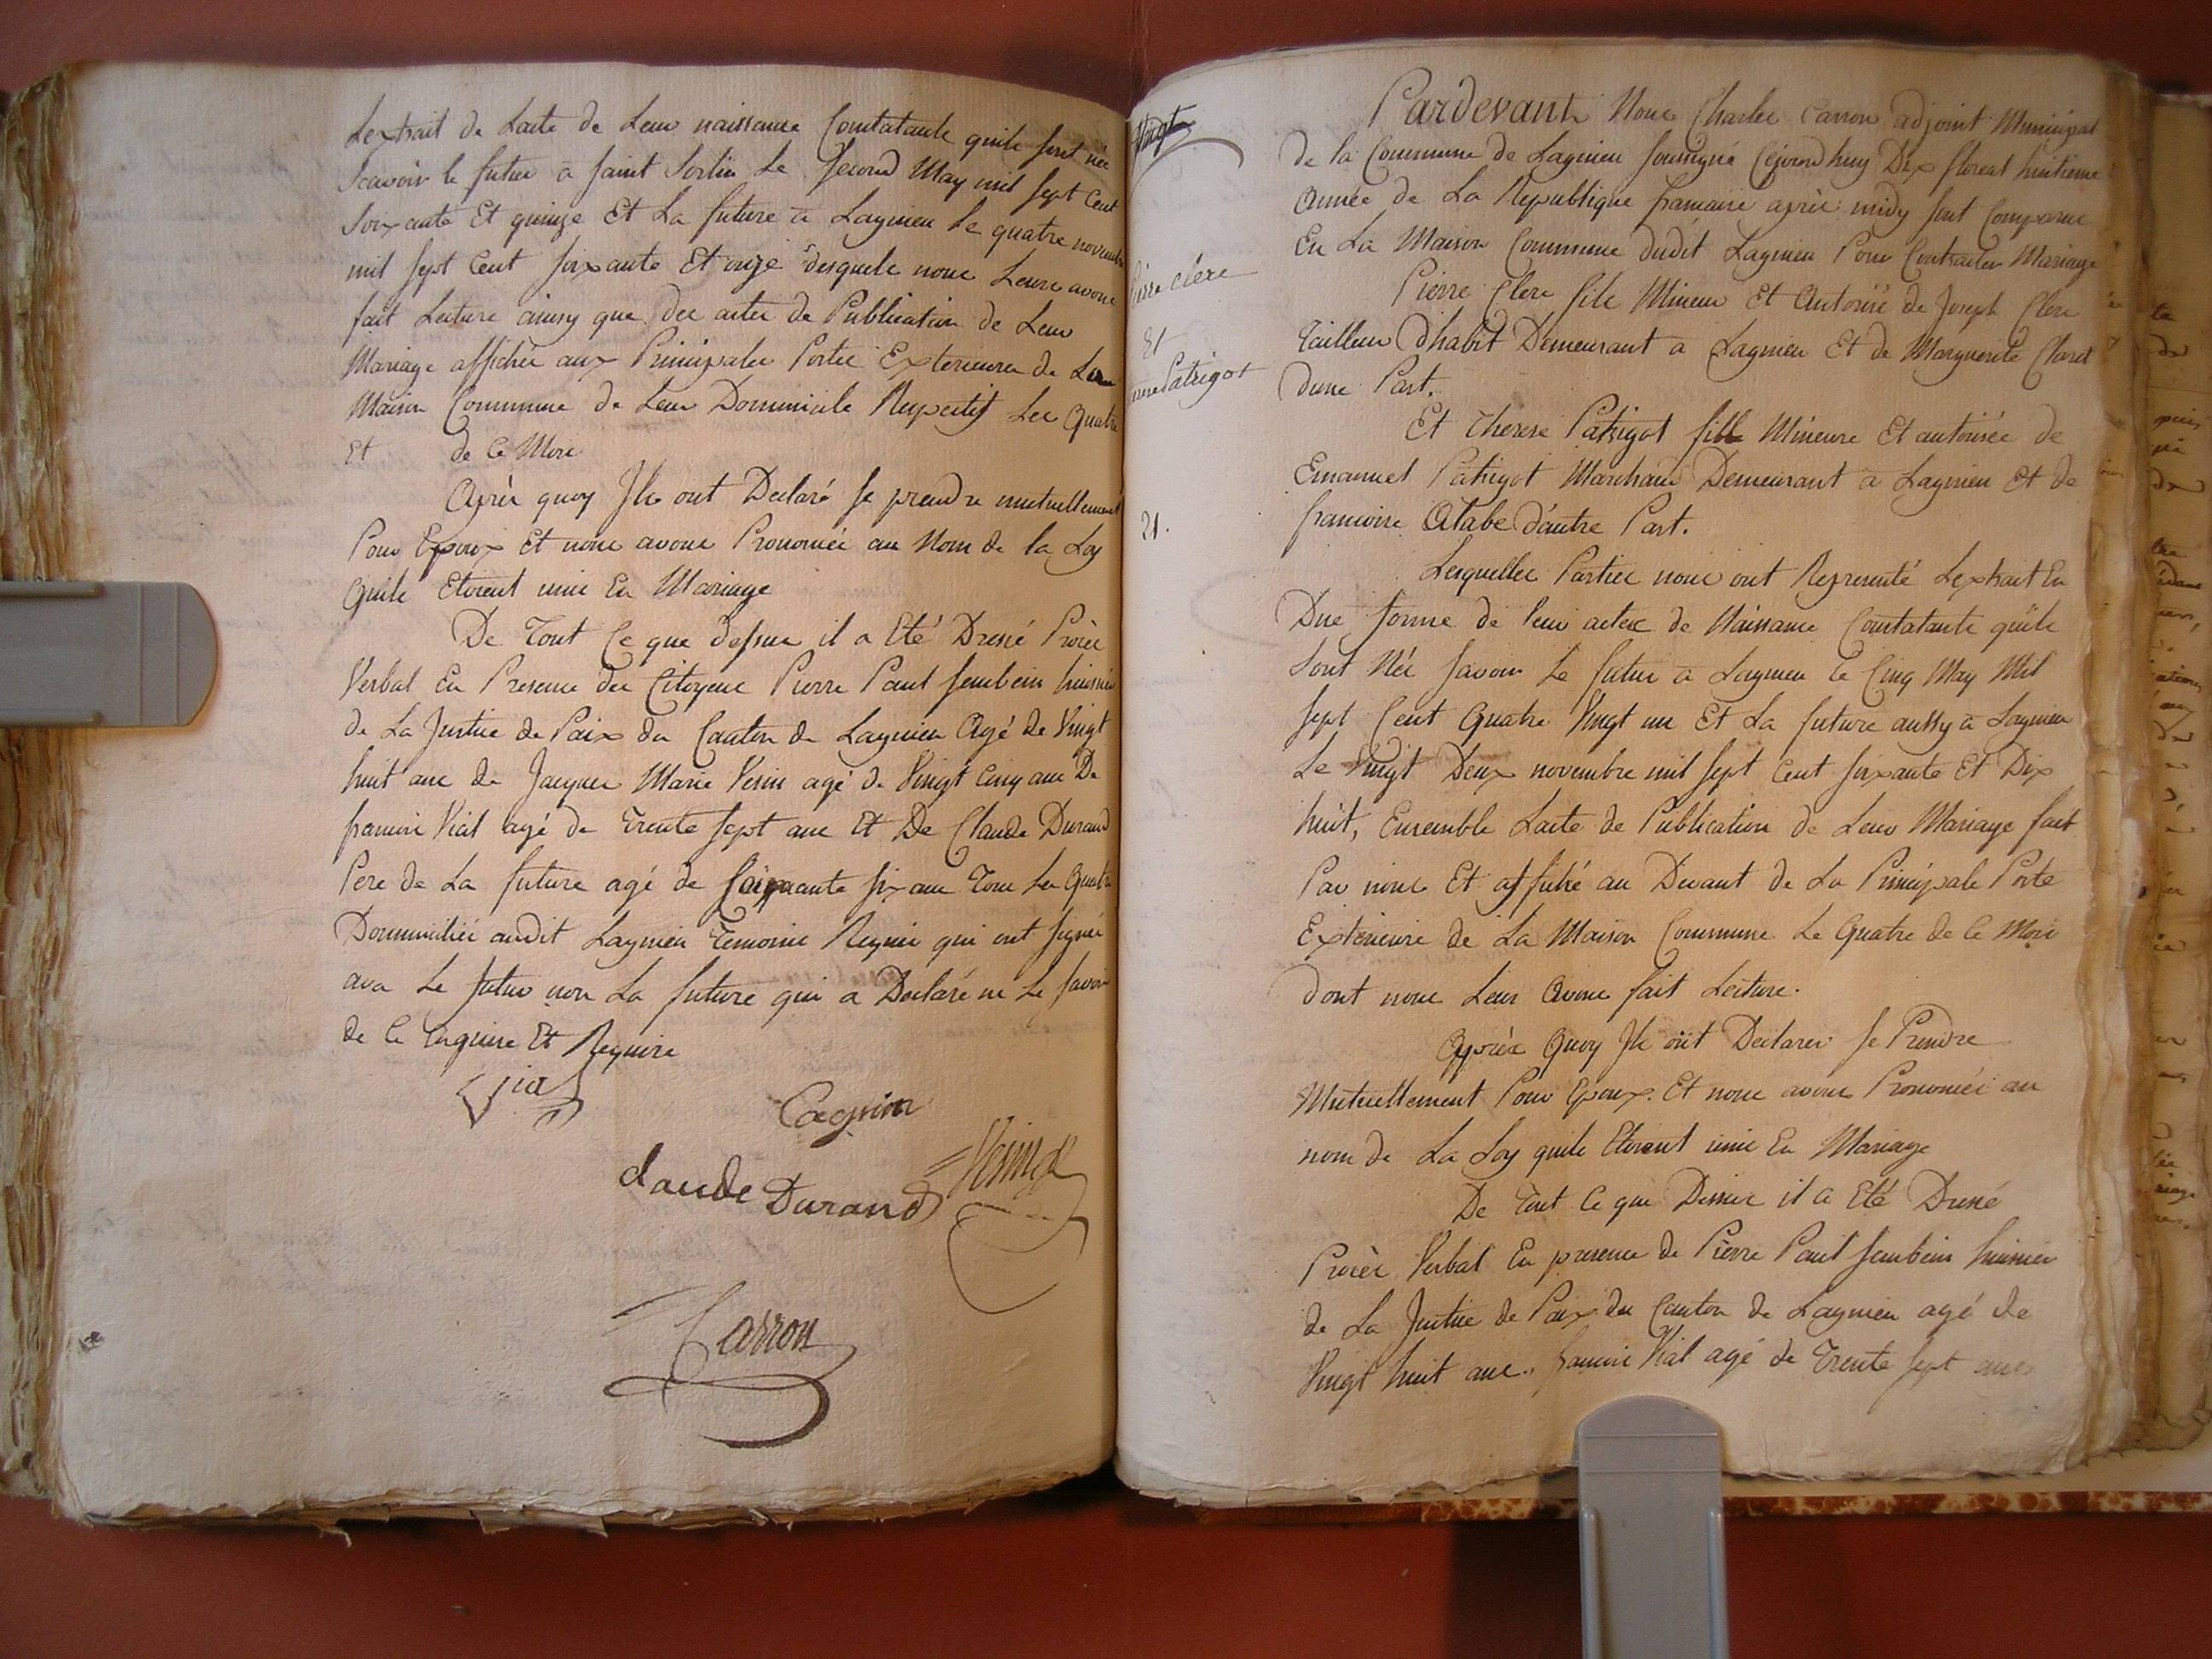 Lextrait de Lacte de Leur naissance Constatante quils sont nés
Scavoir le futur a saint Sorlin Le Second May mil sept Cent
Soixante Et quinze Et La future a Lagnieu le quatre novembre
mil sept Cent soixante Et onze desquels nous Leurs avons
fait Lecture ainsy que des actes de Publication de Leur
Mariage affichée aux Principales Portes Exterieures de La
Maison Commune de Leur Dommicile Respectif Les Quatre
Et de Ce Mois
Après quoy Ils ont Declaré se prendre mutuellement
Pour Epoux Et nous avons Prononcée au Nom de la Loy
Quils Etoient unis En Mariage
De Tout Ce que dessus il a Eté Dressé Procès
Verbal En Presence des Citoyens Pierre Paul huissier
de La Justice de Paix du Canton de Lagnieu Agé de Vingt
huit ans de Jacques Marie agé de Vingt Cinq ans De
francois Vial agé de Trente sept ans Et De Claude Durand
Pere de La future agé de soixante six ans Tous Les Quatre
Dommiciliés audit Lagnieu Temoins Requis qui ont signés
avec Le futur non La future qui a Declaré ne Le savoir
de Ce Enquise Et Requise
Vial
Cagnin
Claude Durand
Carron
Pierre Clerc
Et
Patrigot
21.
Pardevant Nous Charles Carron adjoint Municipal
de la Commune de Lagnieu soussigné Cejourdhuy Dix floreal huitieme
Année de La Republique francaise après midy sont Comparus
En La Maison Commune dudit Lagnieu Pour Contracter Mariage
Pierre Clerc fils Mineur Et Autorisé de Joseph Clerc
Tailleur Dhabit Demeurant a Lagnieu Et de Marguerite Claret
dune Part.
Et Therese Patrigot fille Mineure Et autorisée de
Emanuel Patrigot Marchand Demeurant a Lagnieu Et de
francoise d'autre Part.
Lesquelles Parties nous ont Representé Lextrait En
Due forme de leur actes de Naissance Constatante quils
Sont Nés savoir Le futur a Lagnieu le Cinq May Mil
sept Cent Quatre Vingt un Et La future aussy a Lagnieu
Le Vingt Deux novembre mil sept Cent soixante Et Dix
huit, Ensemble Lacte de Publication de Leur Mariage fait
Par nous Et affiché au Devant de La Principale Porte
Exterieure de La Maison Commune Le Quatre de Ce Mois
dont nous Leur Avons fait Lecture.
Après Quoy Ils ont Declarer se Prendre
Mutuellement Pour Epoux. Et nous avons Prononcés au
nom de La Loy quils Etoient unis En Mariage
De Tout Ce que Dessus il a Eté Dressé
Procès Verbal En presence de Pierre Paul huissier
de La Justice de Paix du Canton de Lagnieu agé de
Vingt huit ans. francois Vial agé de Trente sept ans